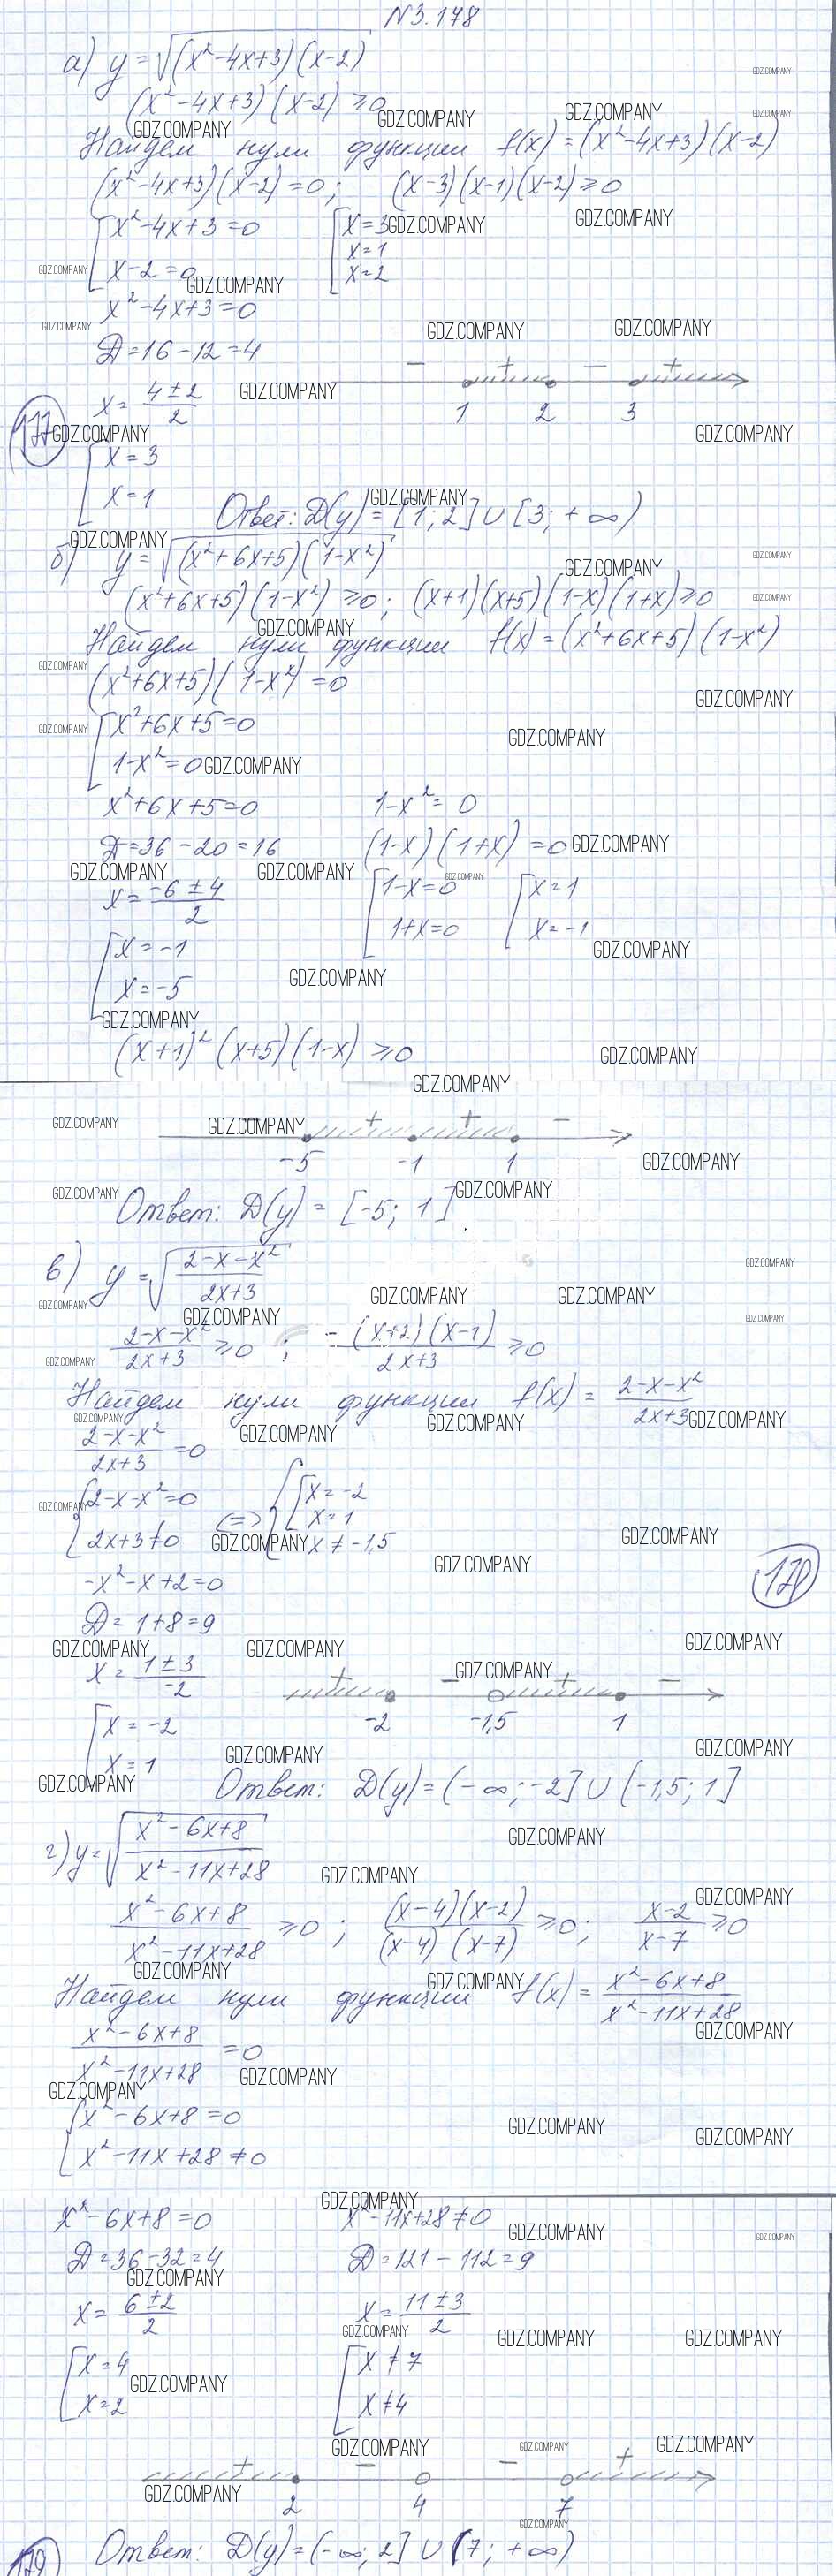 N3.178
а) y = √(x²-4x+3)(x-2)
(x²-4x+3)(x-2) ≥0
Найдем нули функции f(x)=(x²-4x+3)(x-2)
(x²-4x+3)(x-2)=0; (x-3)(x-1)(x-2)≥0
[x²-4x+3=0 [x=3
x-2=0 x=1
x=2
x²-4x+3=0
D=16-12=4
x= (4±2)/2
- + - +
1 2 3
177
[x=3
x=1
Ответ: D(y)=[1;2]∪[3;+∞)
б) y=√(x²+6x+5)(1-x²)
(x²+6x+5)(1-x²)≥0; (x+1)(x+5)(1-x)(1+x)≥0
Найдем нули функции f(x)=(x²+6x+5)(1-x²)
(x²+6x+5)(1-x²)=0
[x²+6x+5=0
1-x²=0
x²+6x+5=0 1-x²=0
D=36-20=16 (1-x)(1+x)=0
x=(-6±4)/2 [1-x=0 [x=1
1+x=0 x=-1
[x=-1
x=-5
(x+1)²(x+5)(1-x)≥0
+ + -
-5 -1 1
Ответ: D(y)=[-5; 1]
в) y=√(2-x-x²)/(2x+3)
(2-x-x²)/(2x+3) ≥0; -(x+2)(x-1)/(2x+3) ≥0
Найдем нули функции f(x)=(2-x-x²)/(2x+3)
(2-x-x²)/(2x+3)=0
{2-x-x²=0 <=> {[x=-2
x=1
2x+3≠0 x≠-1,5
178
-x²-x+2=0
D=1+8=9
x=(1±3)/-2
+ - + -
-2 -1,5 1
[x=-2
x=1
Ответ: D(y)=(-∞;-2]∪(-1,5;1]
г) y=√(x²-6x+8)/(x²-11x+28)
(x²-6x+8)/(x²-11x+28) ≥0; (x-4)(x-2)/(x-4)(x-7) ≥0; (x-2)/(x-7) ≥0
Найдем нули функции f(x)=(x²-6x+8)/(x²-11x+28)
(x²-6x+8)/(x²-11x+28)=0
{x²-6x+8=0
x²-11x+28≠0
x²-6x+8=0 x²-11x+28≠0
D=36-32=4 D=121-112=9
x=(6±2)/2 x=(11±3)/2
[x=4 [x≠7
x=2 x≠4
+ - - +
2 4 7
Ответ: D(y)=(-∞;2]∪(7;+∞)
179
GDZ.COMPANY